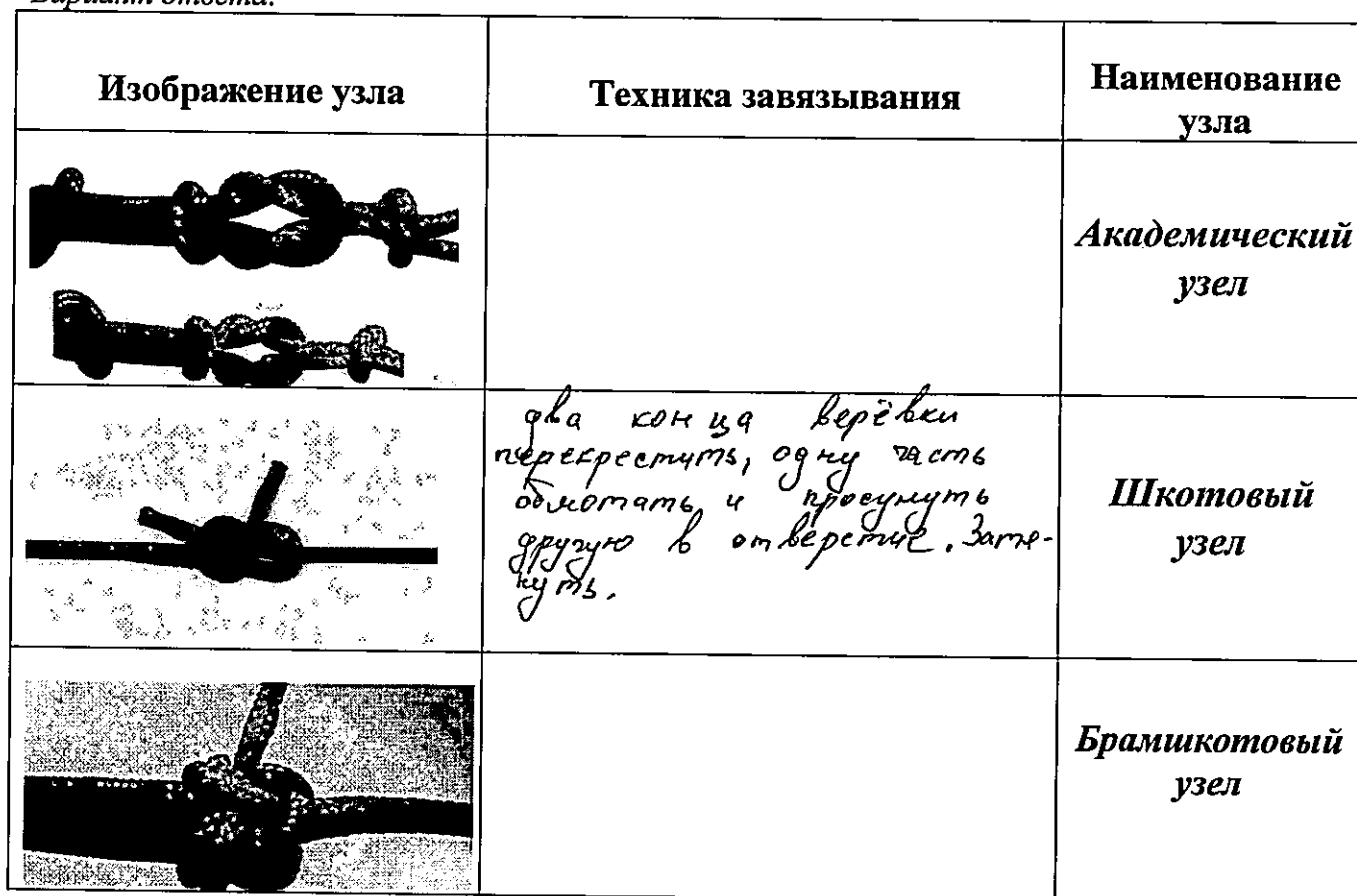 Вариант ответа:
Изображение узла
Техника завязывания
Наименование
узла
Академический
узел
два конца верёвки
перекрестить, одну часть
обмотать и просунуть
другую в отверстие. Затя-
нуть.
Шкотовый
узел
Брамшкотовый
узел